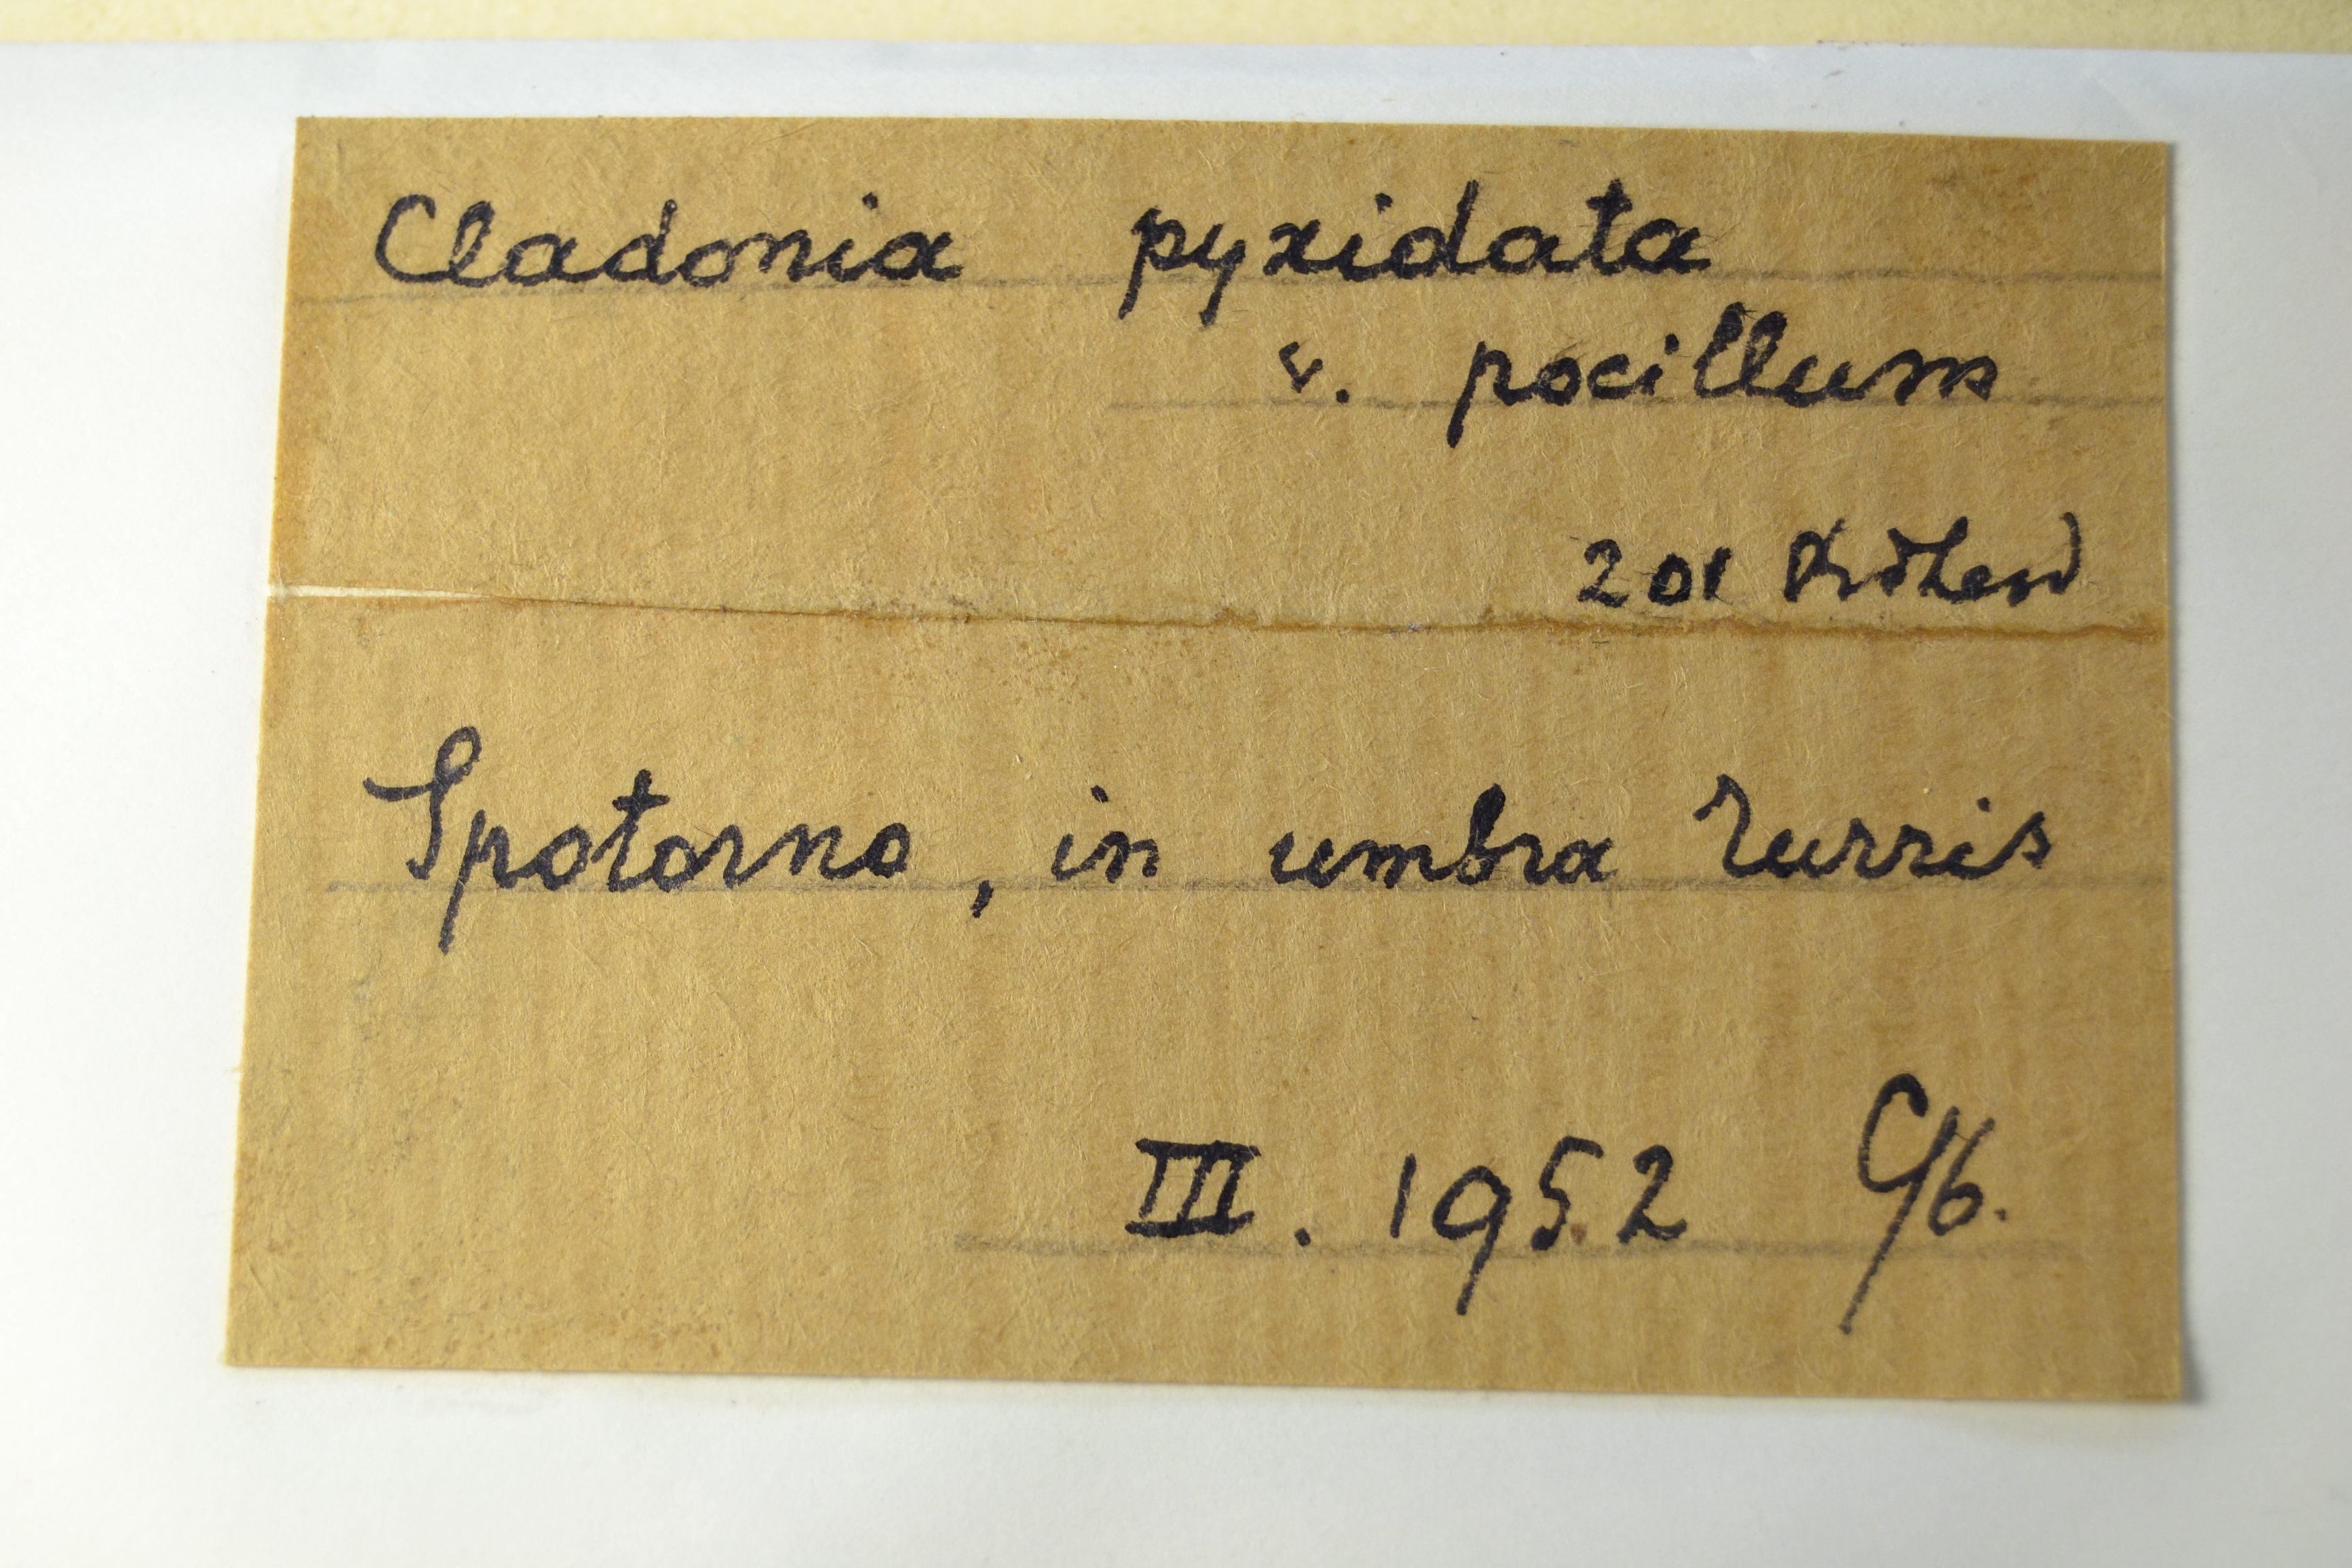 Cladonia pyxidata
v. pocillum
201
Spotorno, in umbra Turris
III. 1952